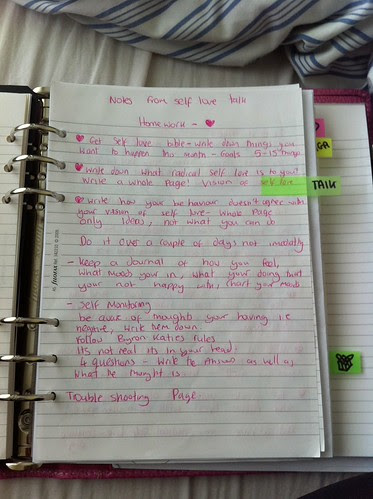 Notes from self love talk
Homework - ♥
♥ Get self love bible - write down things you
want to happen this month - Goals 5-15 things
♥ write down what radical self love is to you?
Write a whole page! Vision of self love
TALK
♥ Write how your behaviour doesn't agree with
your vision of self love - whole page
only ideas, not what you can do
Do it over a couple of days not
- keep a Journal of how you feel,
what moods your in, what your doing that
your not happy with, chart your moods
- Self Monitoring
be aware of thoughts your having i.e
negative, write them down.
Follow Byron Katies Rules
Its not real its in your head.
4 questions - write the answer as well as
what the thought is
Trouble shooting Page.